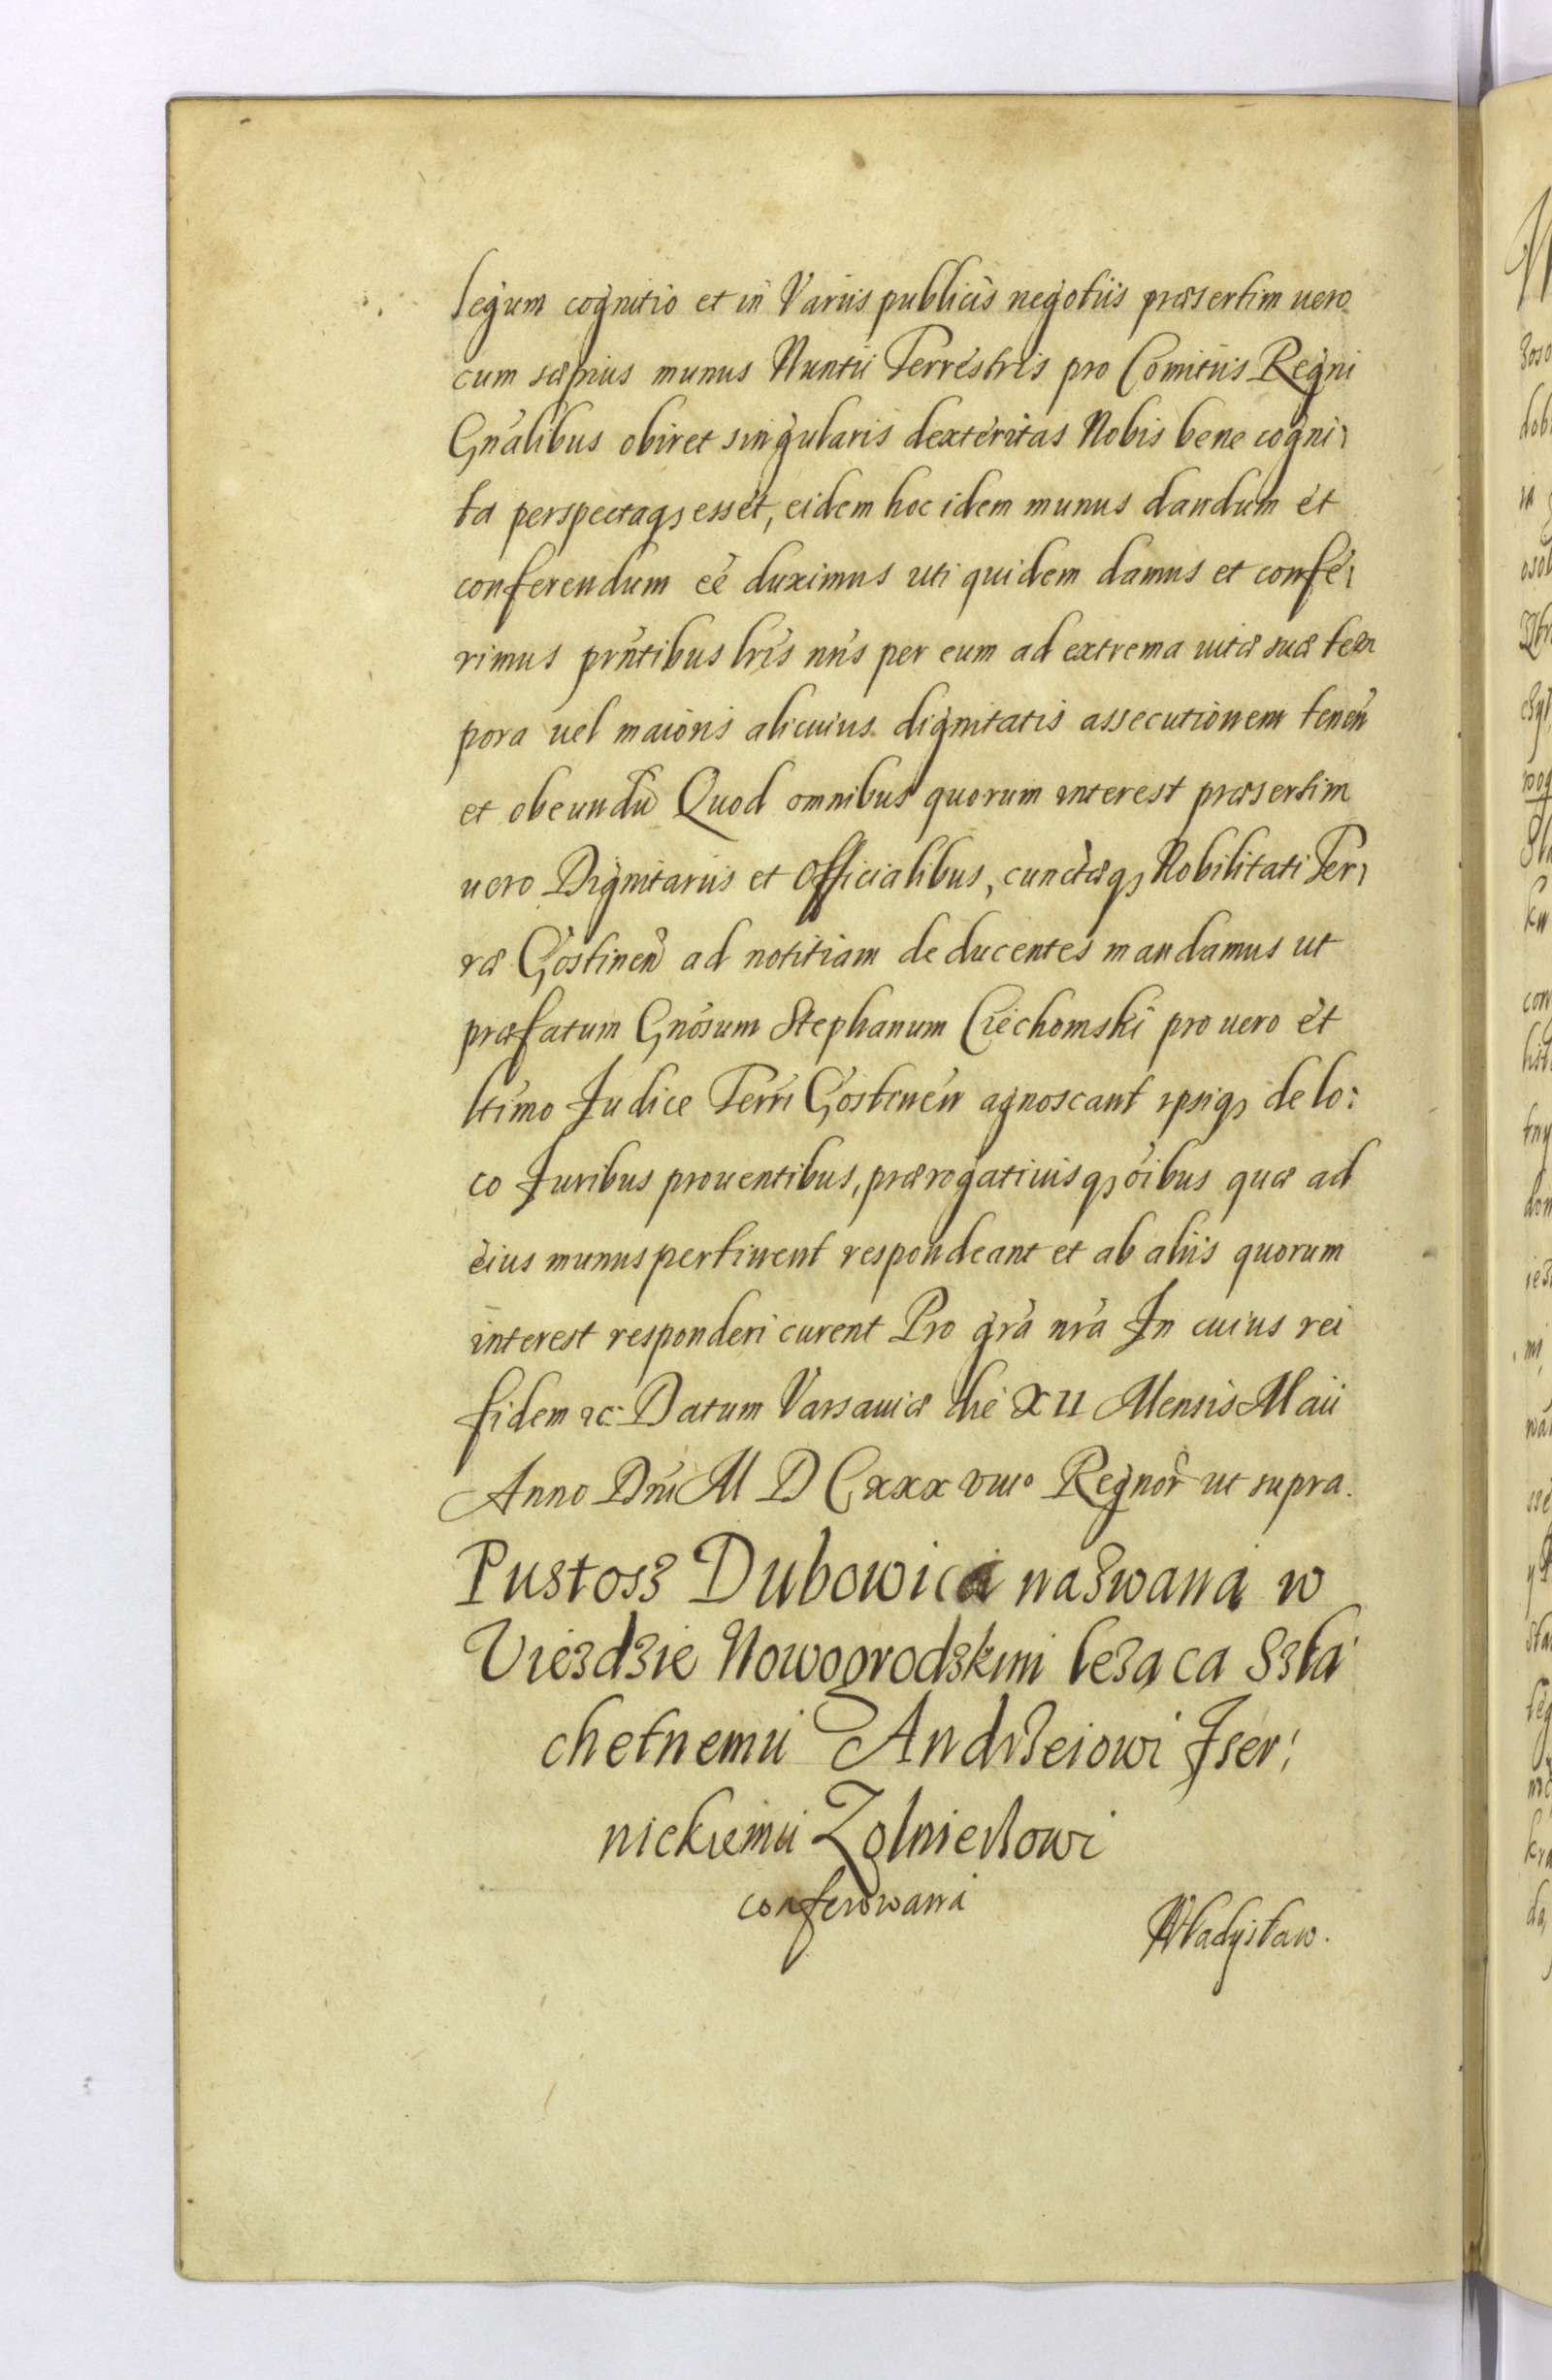 legum cognitio et in Variis publicis negotiis præsertim uero
cum sæpius munus Nuntii Terrestris pro Comitiis Regni
Gnalibus obiret singularis dexteritas Nobis bene cogni
ta perspectaq esset, eidem hoc idem munus dandum et
conferendum eê duximus uti quidem damus et confe
rimus prntibus lris nris per eum ad extrema uitæ suæ tem
pora uel maioris alicuius dignitatis assecutionem tenen
et obeundu Quod omnibus quorum interest præsertim
uero Dignitariis et Officialibus, cunctæq Nobilitati Ter
ræ Gostinen ad notitiam deducentes mandamus ut
præfatum Gnosum Stephanum Ciechomski pro uero et
ltimo Judice Terri Gostinen agnoscant ipsiq de lo:
co Juribus prouentibus, prærogatiuisq oibus quæ ad
eius munus pertinent respondeant et ab aliis quorum
interest responderi curent Pro gra nra In cuius rei
fidem &c: Datum Varsauiæ die XII Mensis Maii
Anno Dni M D Cxxx viiio Regnor ut supra.
Pustosz Dubowica nazwana w
Uiezdzie Nowogrodzkim lezaca Szla
chetnemu Andrzeiowi Iser
nickiemu Zolnierzowi
conferowana
Władysław.